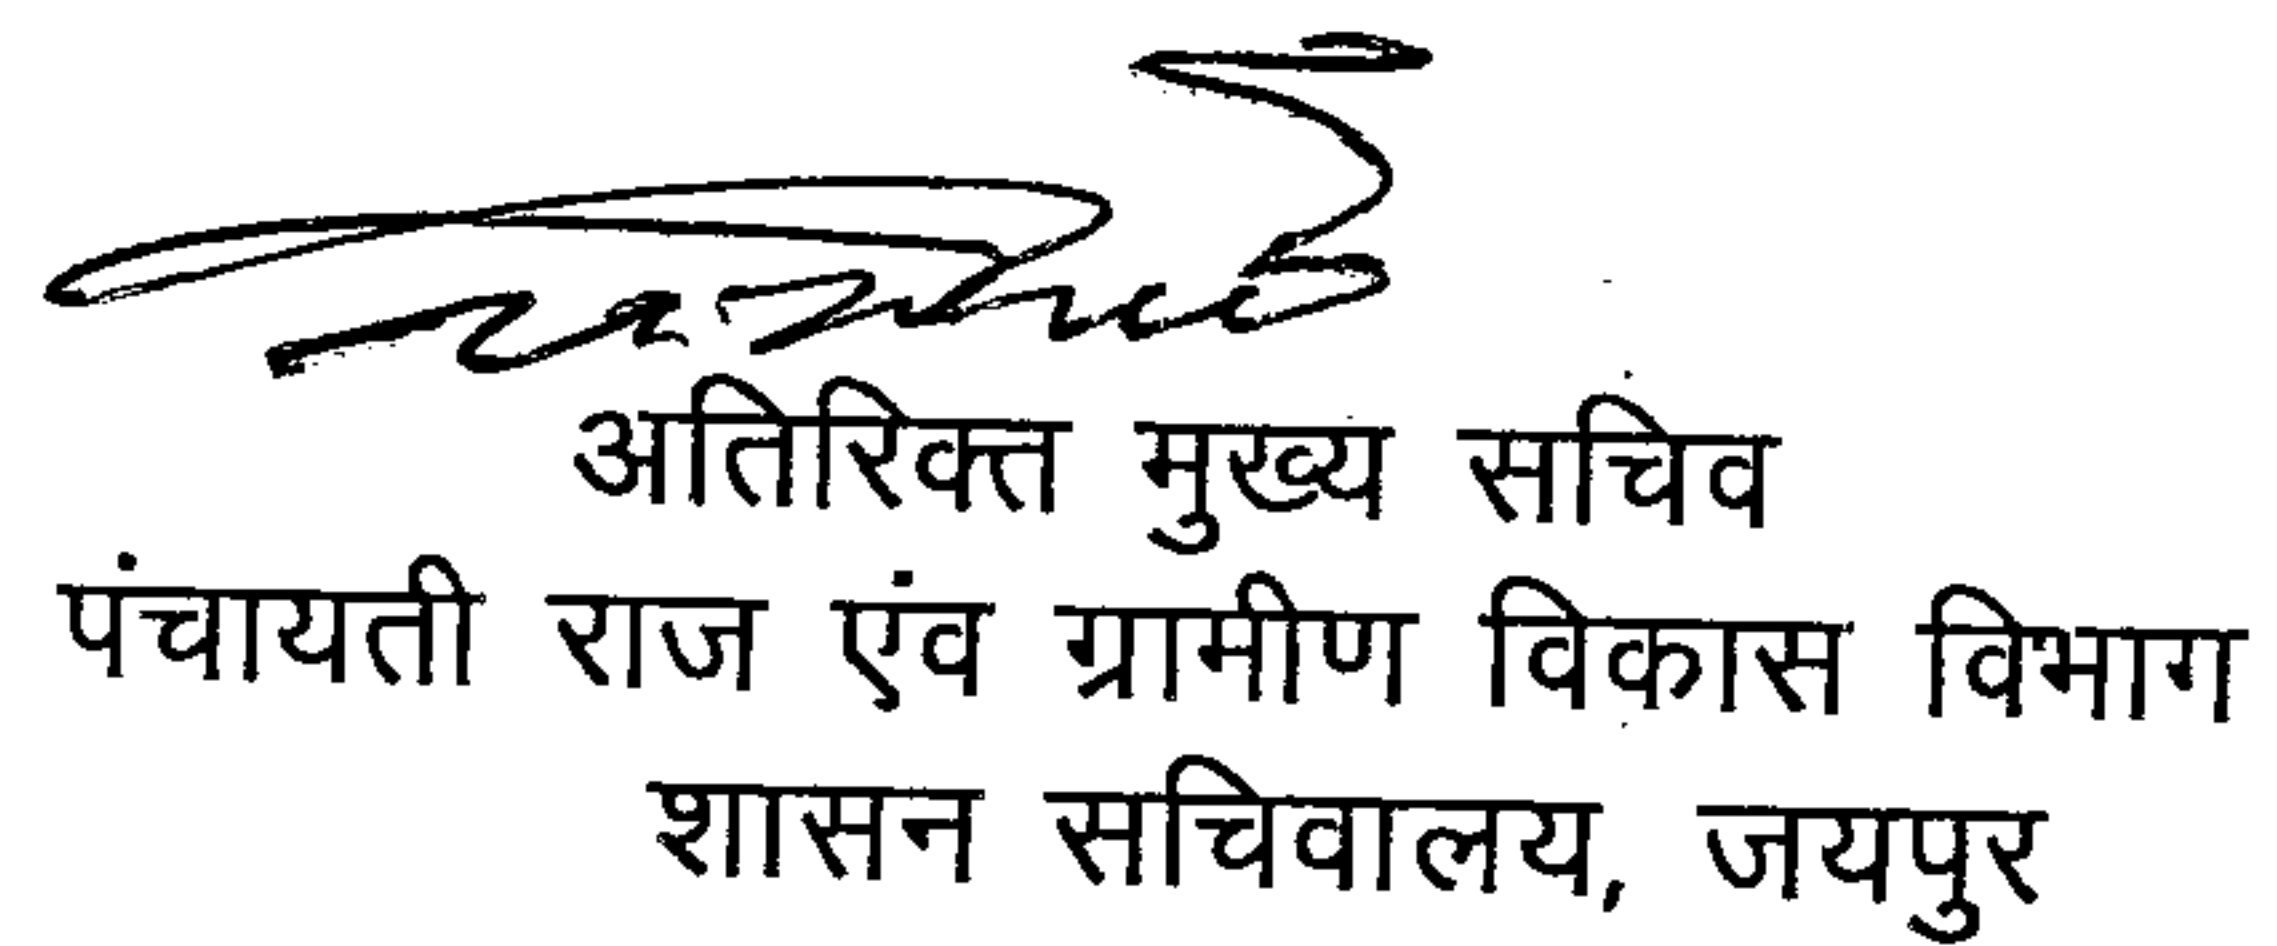 अतिरिक्त मुख्य सचिव
पंचायती राज एंव ग्रामीण विकास विभाग
शासन सचिवालय, जयपुर